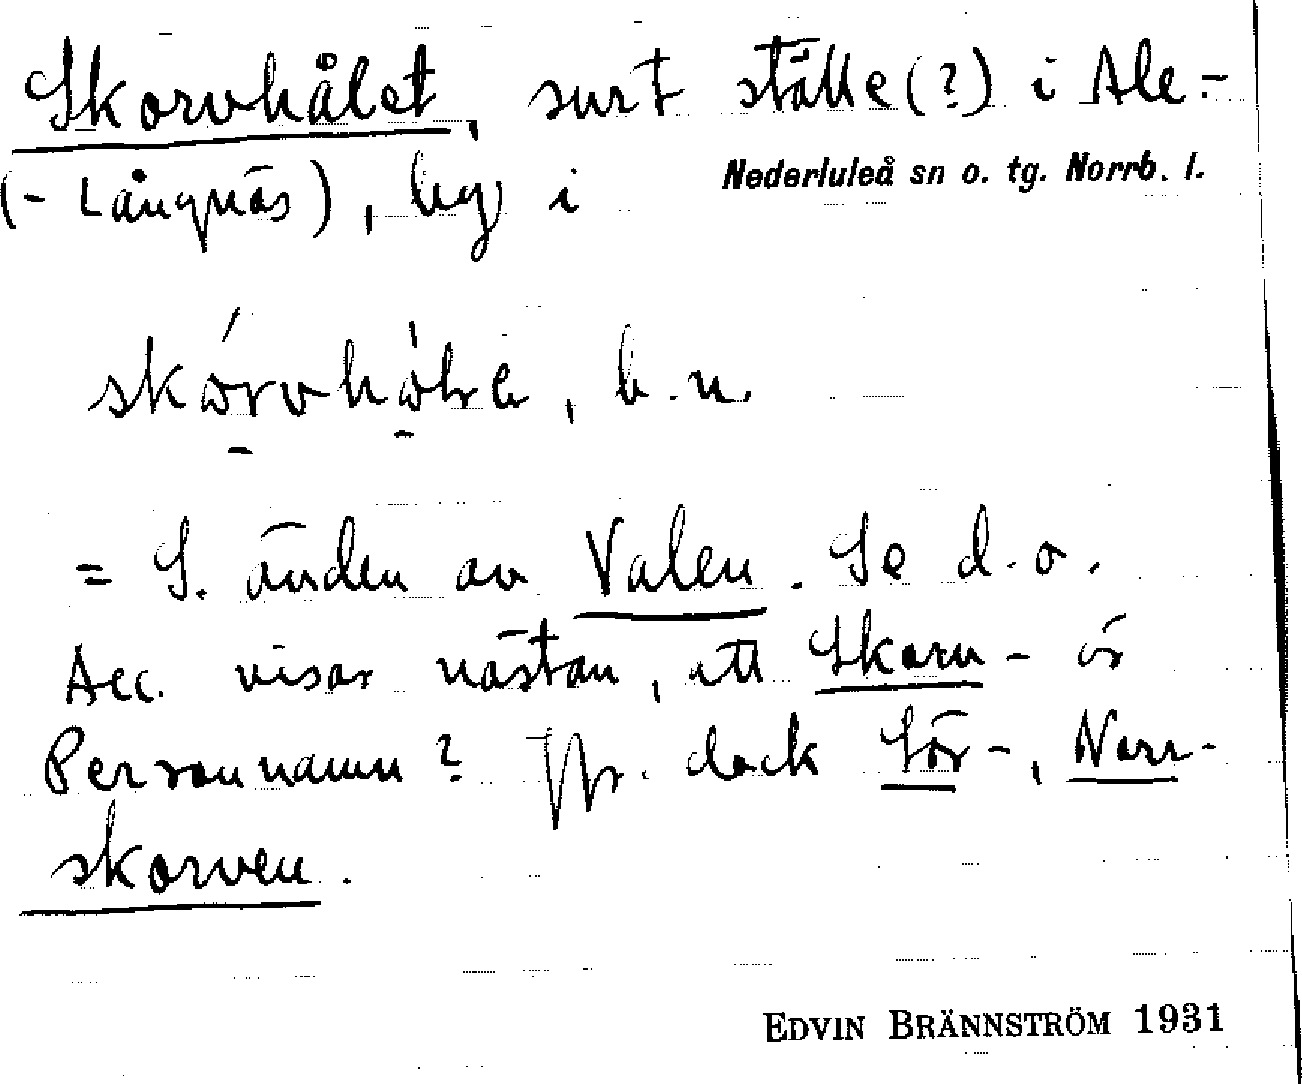 Skorvhålet, surt ställe (?) i Ale-
(-Långnäs), beg i Nederluleå sn o. tg. Norrb. l.
b. n.
= S. änden av Valen. Se d. o.
Acc. visar nästan, att Skorv- är
Personnamn? Jfr. dock Sör-, Norr-
skorven.
EDVIN BRÄNNSTRÖM 1931